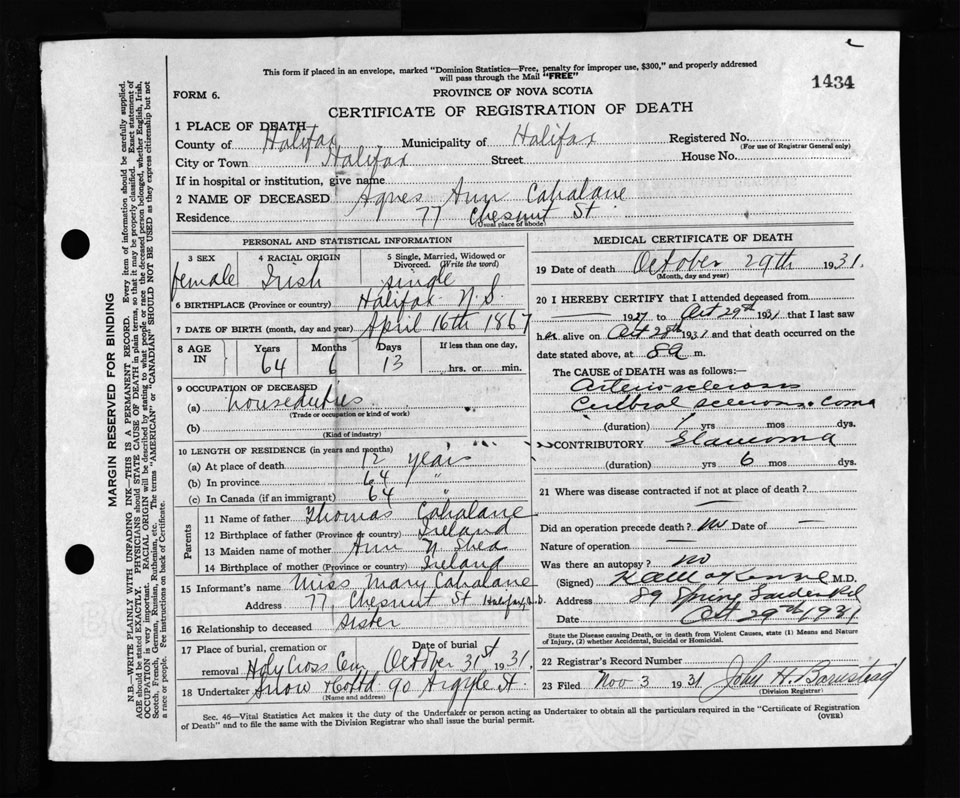 This form if placed in an envelope, marked "Dominion Statistics—Free, penalty for improper use, $300," and properly addressed
will pass through the Mail "FREE"
1434
FORM 6.
PROVINCE OF NOVA SCOTIA
CERTIFICATE OF REGISTRATION OF DEATH
1 PLACE OF DEATH
County of Halifax, Municipality of Halifax Registered No.
(For use of Registrar General only)
City or Town Halifax Street House No.
If in hospital or institution, give name
2 NAME OF DECEASED Agnes Ann Cahalane
Residence 77 Chesnut St
(Usual place of abode)
PERSONAL AND STATISTICAL INFORMATION
3 SEX 4 RACIAL ORIGIN 5 Single, Married, Widowed or
Divorced. (Write the word)
female Irish single
6 BIRTHPLACE (Province or country) Halifax N.S.
7 DATE OF BIRTH (month, day and year) April 16th 1867
8 AGE IN Years Months Days If less than one day,
64 6 13 hrs. or min.
9 OCCUPATION OF DECEASED
(a) houseduties
(Trade or occupation or kind of work)
(b)
(Kind of industry)
10 LENGTH OF RESIDENCE (in years and months)
(a) At place of death 12 years
(b) In province 64 "
(c) In Canada (if an immigrant) 64 "
Parents
11 Name of father Thomas Cahalane
12 Birthplace of father (Province or country) Ireland
13 Maiden name of mother Ann Shea
14 Birthplace of mother (Province or country) Ireland
15 Informant's name Miss Mary Cahalane
Address 77 Chesnut St Halifax,
16 Relationship to deceased sister
17 Place of burial, cremation or Date of burial
removal Holy Cross Cem October 31st 1931.
18 Undertaker Snow & Co Ltd 90 Argyle St
(Name and address)
MEDICAL CERTIFICATE OF DEATH
19 Date of death October 29th 1931.
(Month, day and year)
20 I HEREBY CERTIFY that I attended deceased from
— 1927 to Oct 29th 1931 that I last saw
her alive on Oct 28th 1931 and that death occurred on the
date stated above, at 8a m.
The CAUSE of DEATH was as follows:
Arterio sclerosis
Cerebral sclerosis. coma
(duration) 1 yrs mos dys.
CONTRIBUTORY Glaucoma
(duration) yrs 6 mos dys.
21 Where was disease contracted if not at place of death?
—
Did an operation precede death? no Date of —
Nature of operation —
Was there an autopsy? no
(Signed) M.D.
Address 89 Spring Garden Rd
Date Oct 29th 1931
State the Disease causing Death, or in death from Violent Causes, state (1) Means and Nature
of Injury, (2) whether Accidental, Suicidal or Homicidal.
22 Registrar's Record Number
23 Filed Nov 3 1931 John H. Barnstead
(Division Registrar)
Sec. 46—Vital Statistics Act makes it the duty of the Undertaker or person acting as Undertaker to obtain all the particulars required in the "Certificate of Registration
of Death" and to file the same with the Division Registrar who shall issue the burial permit.
(OVER)
MARGIN RESERVED FOR BINDING
N.B.—WRITE PLAINLY WITH UNFADING INK—THIS IS A PERMANENT RECORD. Every item of information should be carefully supplied.
AGE should be stated EXACTLY. PHYSICIANS should STATE CAUSE OF DEATH in plain terms, so that it may be properly classified. Exact statement of
OCCUPATION is very important. RACIAL ORIGIN will be described by stating to what people or race the deceased person belonged, whether English, Irish,
Scotch, French, German, Russian, Ruthenian, etc. The terms "AMERICAN" or "CANADIAN" SHOULD NOT BE USED as they express citizenship but not
a race or people. Fee instructions on back of Certificate.